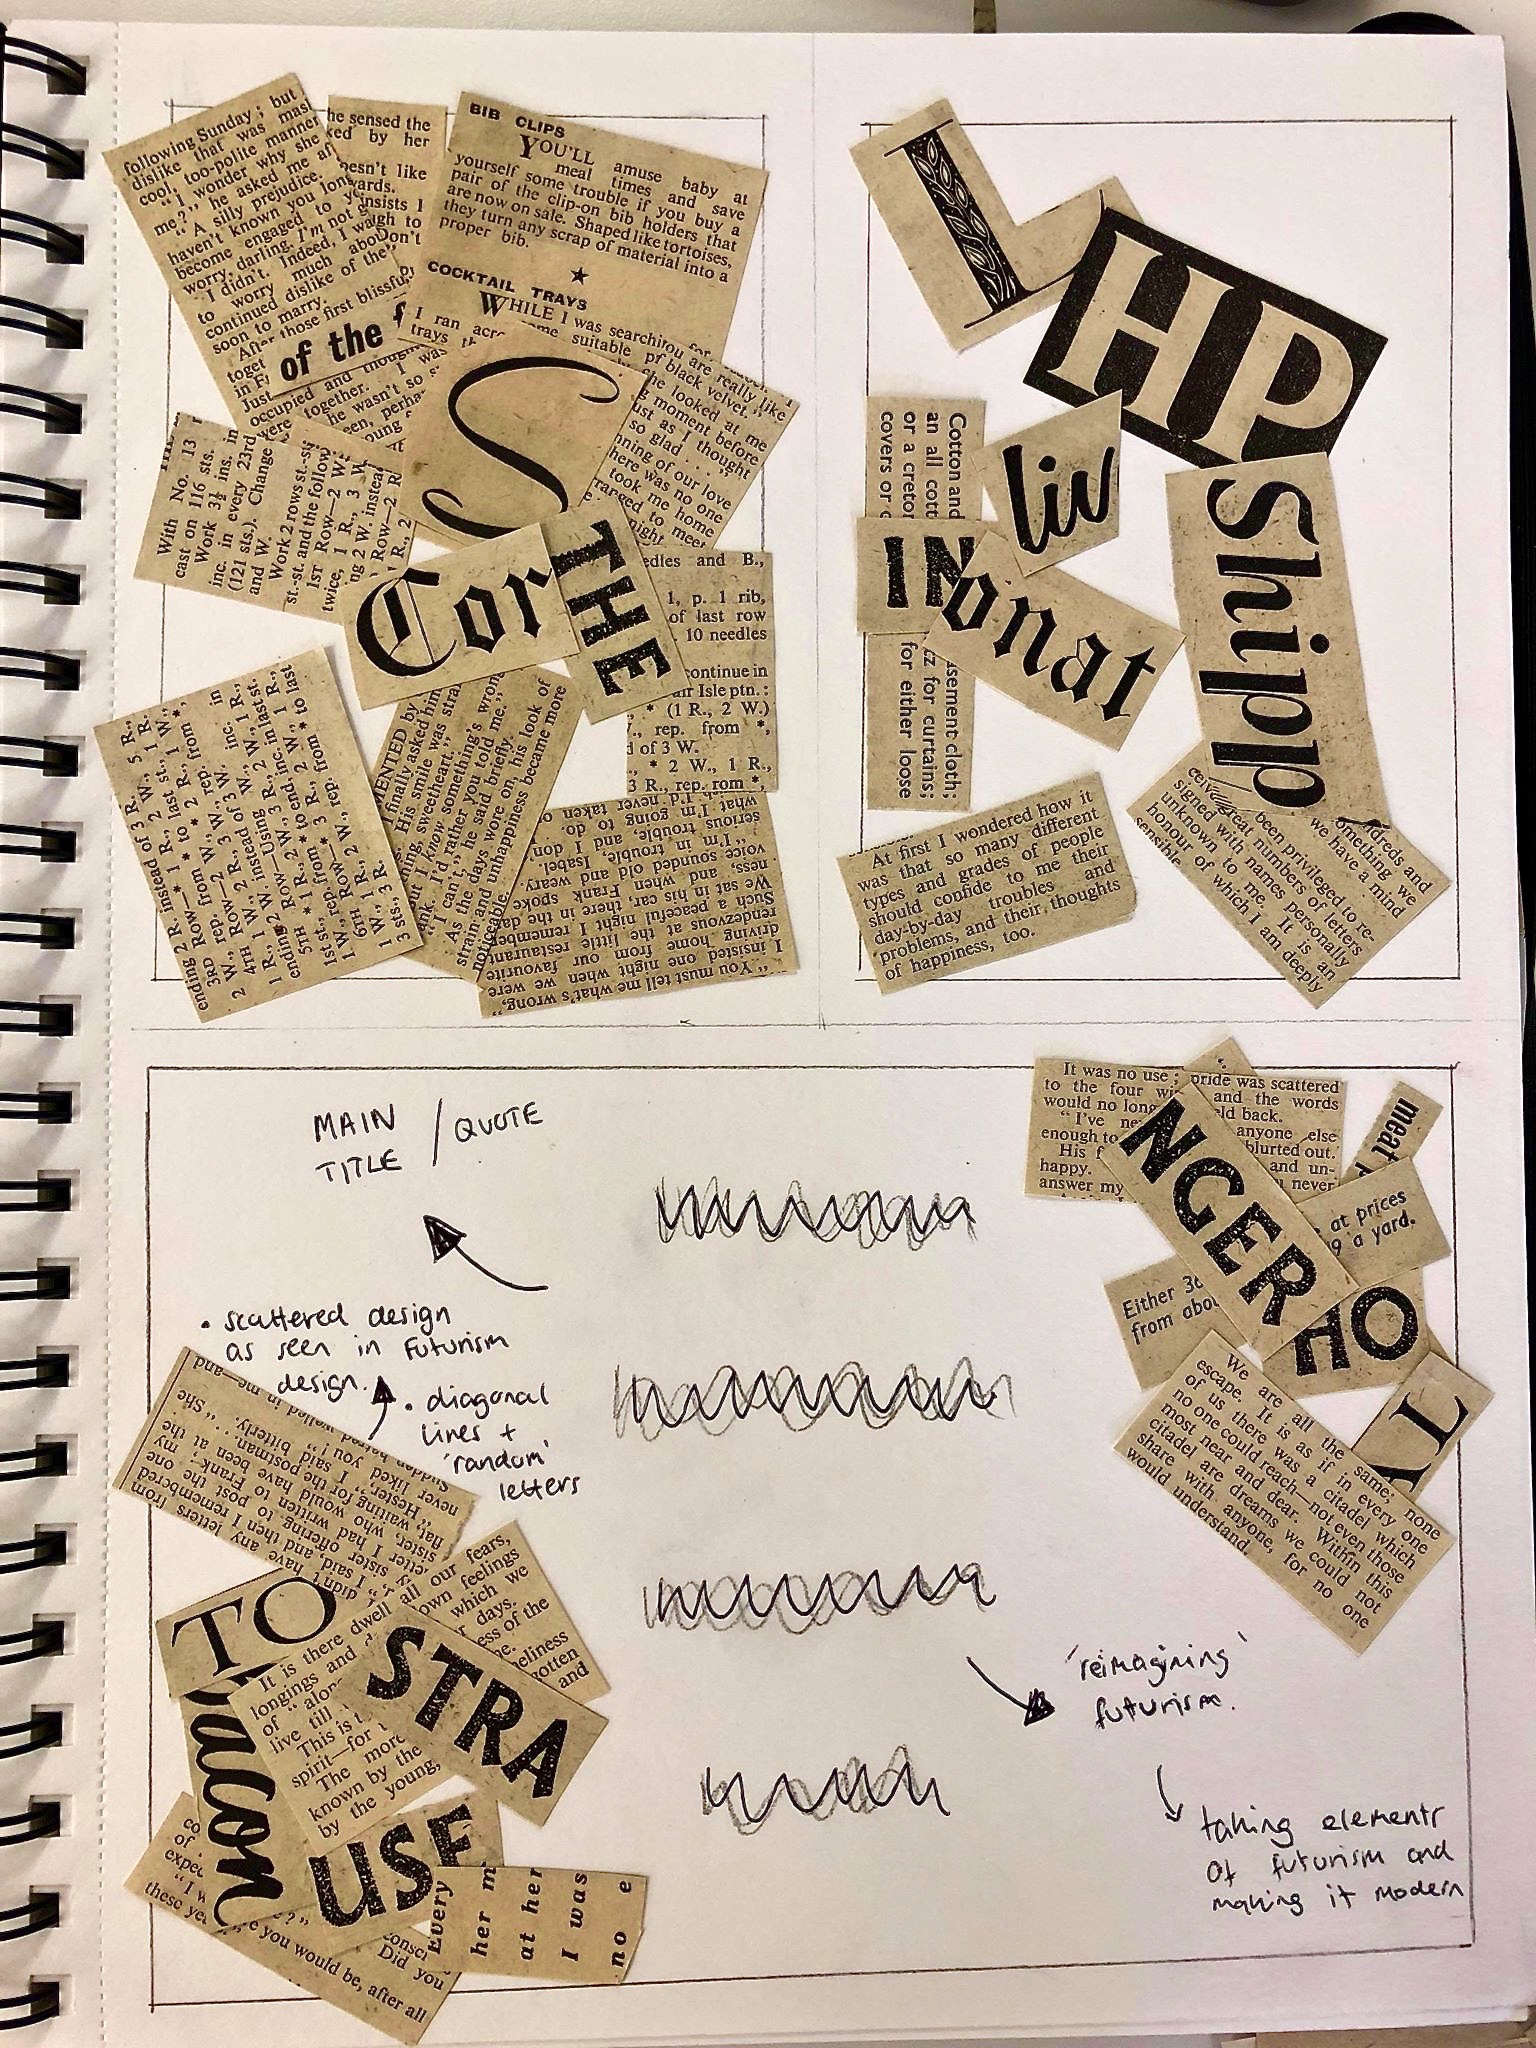 following Sunday; but
dislike that was mas
cool, too-polite manner
"I wonder why she
me?," he asked me af
"A silly prejudice.
haven't known you long
become engaged to yo
worry, darling. I'm not
I didn't. Indeed, I was
to worry much about
continued dislike of the
soon to marry.
After those first blissful
toget
in F
Just
occupied and though
were together. I was
he wasn't so s
been, perha
young
At
he sensed the
ked by her
oesn't like
wards.
insists I
gh to
Don't
of the f
BIB CLIPS
YOU'LL amuse baby at
meal times and save
yourself some trouble if you buy a
pair of the clip-on bib holders that
are now on sale. Shaped like tortoises,
they turn any scrap of material into a
proper bib.
★
COCKTAIL TRAYS
WHILE I was searching
I ran acr
some suitable
trays
you are really like
of black velvet."
he looked at me
g moment before
ust as I thought
so glad . . ."
nning of our love
here was no one
took me home
ranged to meet
night
S
With No. 13
cast on 116 sts.
Work 3½ ins. in
inc. in every 23rd
(121 sts.). Change
and W.
Work 2 rows st.-st.
st.-st. and the follow
1ST Row—2 W.
twice, 1 R., 3 W
ng 2 W. instead
Row—2 R
R., 2
Cor
THE
edles and B.,
1, p. 1 rib,
of last row
10 needles
continue in
air Isle ptn.:
* (1 R., 2 W.)
., rep. from *,
d of 3 W.
* 2 W., 1 R.,
3 R., rep. rom *,
ending 2 R. instead of 3 R.
3RD Row—* 1 R., 2 W., 5 R.,
2 W., rep. from * to last st., 1 R.
4TH Row—2 W., 3 W., 2 R., 1 W.,
1 R., 1 W., 2 R., rep. from *,
ending 2 W. instead of 3 W.
5TH Row—Using W., inc. in
1st st., * 1 R., 2 W., 1 R.,
W., rep. from * to end, inc. in last st.
(6TH Row—* 3 R., 2 W., 1 R.,
1 W., 1 R., 2 W., rep. from * to last
3 sts., 3 R.
MENTED by
I finally asked him
His smile was stra
ning, sweetheart."
But I know something's wron
nk. I'd rather you told me."
"I can't," he said briefly.
As the days wore on, his look of
strain and unhappiness became more
noticeable.
"You must tell me what's wrong,"
I insisted one night when we were
driving home from our favourite
rendezvous at the little restaurant
Such a peaceful night I remember.
We sat in his car, there in the dark-
ness, and when Frank spoke his
voice sounded old and weary.
"I'm in trouble, Isabel,
serious trouble, and I don
what I'm going to do.
I'd never taken
L
HP
Shipp
liv
Cotton and
an all cott
or a creton
covers or c
IN
onat
asement cloth;
cz for curtains;
for either loose
At first I wondered how it
was that so many different
types and grades of people
should confide to me their
day-by-day troubles and
problems, and their thoughts
of happiness, too.
ndreds and
omething we
we have a mind
been privileged to re-
ceive great numbers of letters
signed with names personally
unknown to me. It is an
honour of which I am deeply
sensible.
MAIN / QUOTE
TITLE
• scattered design
as seen in Futurism
design.
• diagonal
lines +
'random'
letters
It was no use; pride was scattered
to the four wi and the words
would no long eld back.
"I've ne anyone else
enough to blurted out.
His f and un-
happy. u never
answer my
meat p
NGER
at prices
9 a yard.
Either 36
from abou
HO
L
We are all the same; none
escape. It is as if in every one
of us there was a citadel which
no one could reach—not even those
most near and dear. Within this
citadel are dreams we could not
share with anyone, for no one
would understand.
didn't have any letters from
," I said, and then I remembered
sister offering to post the one
etter I had written to Frank; my
sister, who would have been at the
flat, waiting for the postman.
"Hester," I said bitterly. "She
never liked you!"
hatred welled in me and—
TO
It is there dwell all our fears,
longings and
own feelings
of "alon
which we
live till
r days.
This is t
ess of the
spirit—for
The more
known by the
by the young,
eliness
gotten
and
STRA
acon
USE
co
of
expec
"I w
these ye
e?"
e you would be, after all
consci
Did you
Every
her m
at her
I was
no e
'reimagining'
futurism.
taking elements
of futurism and
making it modern